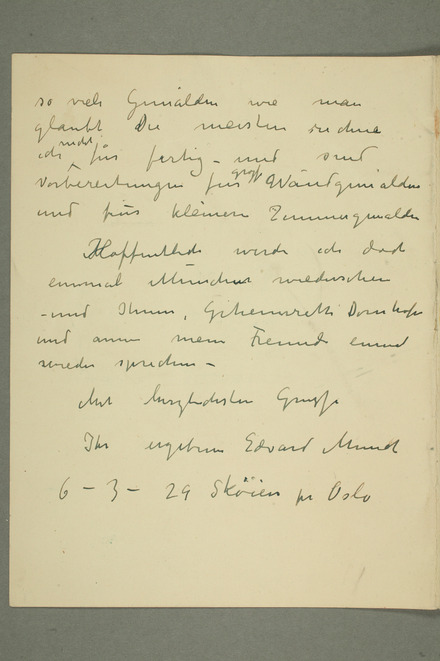 so viele Gemälden wie man
glaubt Die meisten rechne
ich nicht für fertig – und sind
Vorbereitungen für grosse Wandgemälden
und für kleinere Zimmergemälden
Hoffentlich werde ich doch
einmal München wiedersehen
– und Ihnen, Geheimrath Dornhöfer
und andere meine Freunde einmal
wieder sprechen –
Mit herzlichsten Grusse
Ihr ergebene Edvard Munch
6 – 3 – 29 Sköien pr Oslo